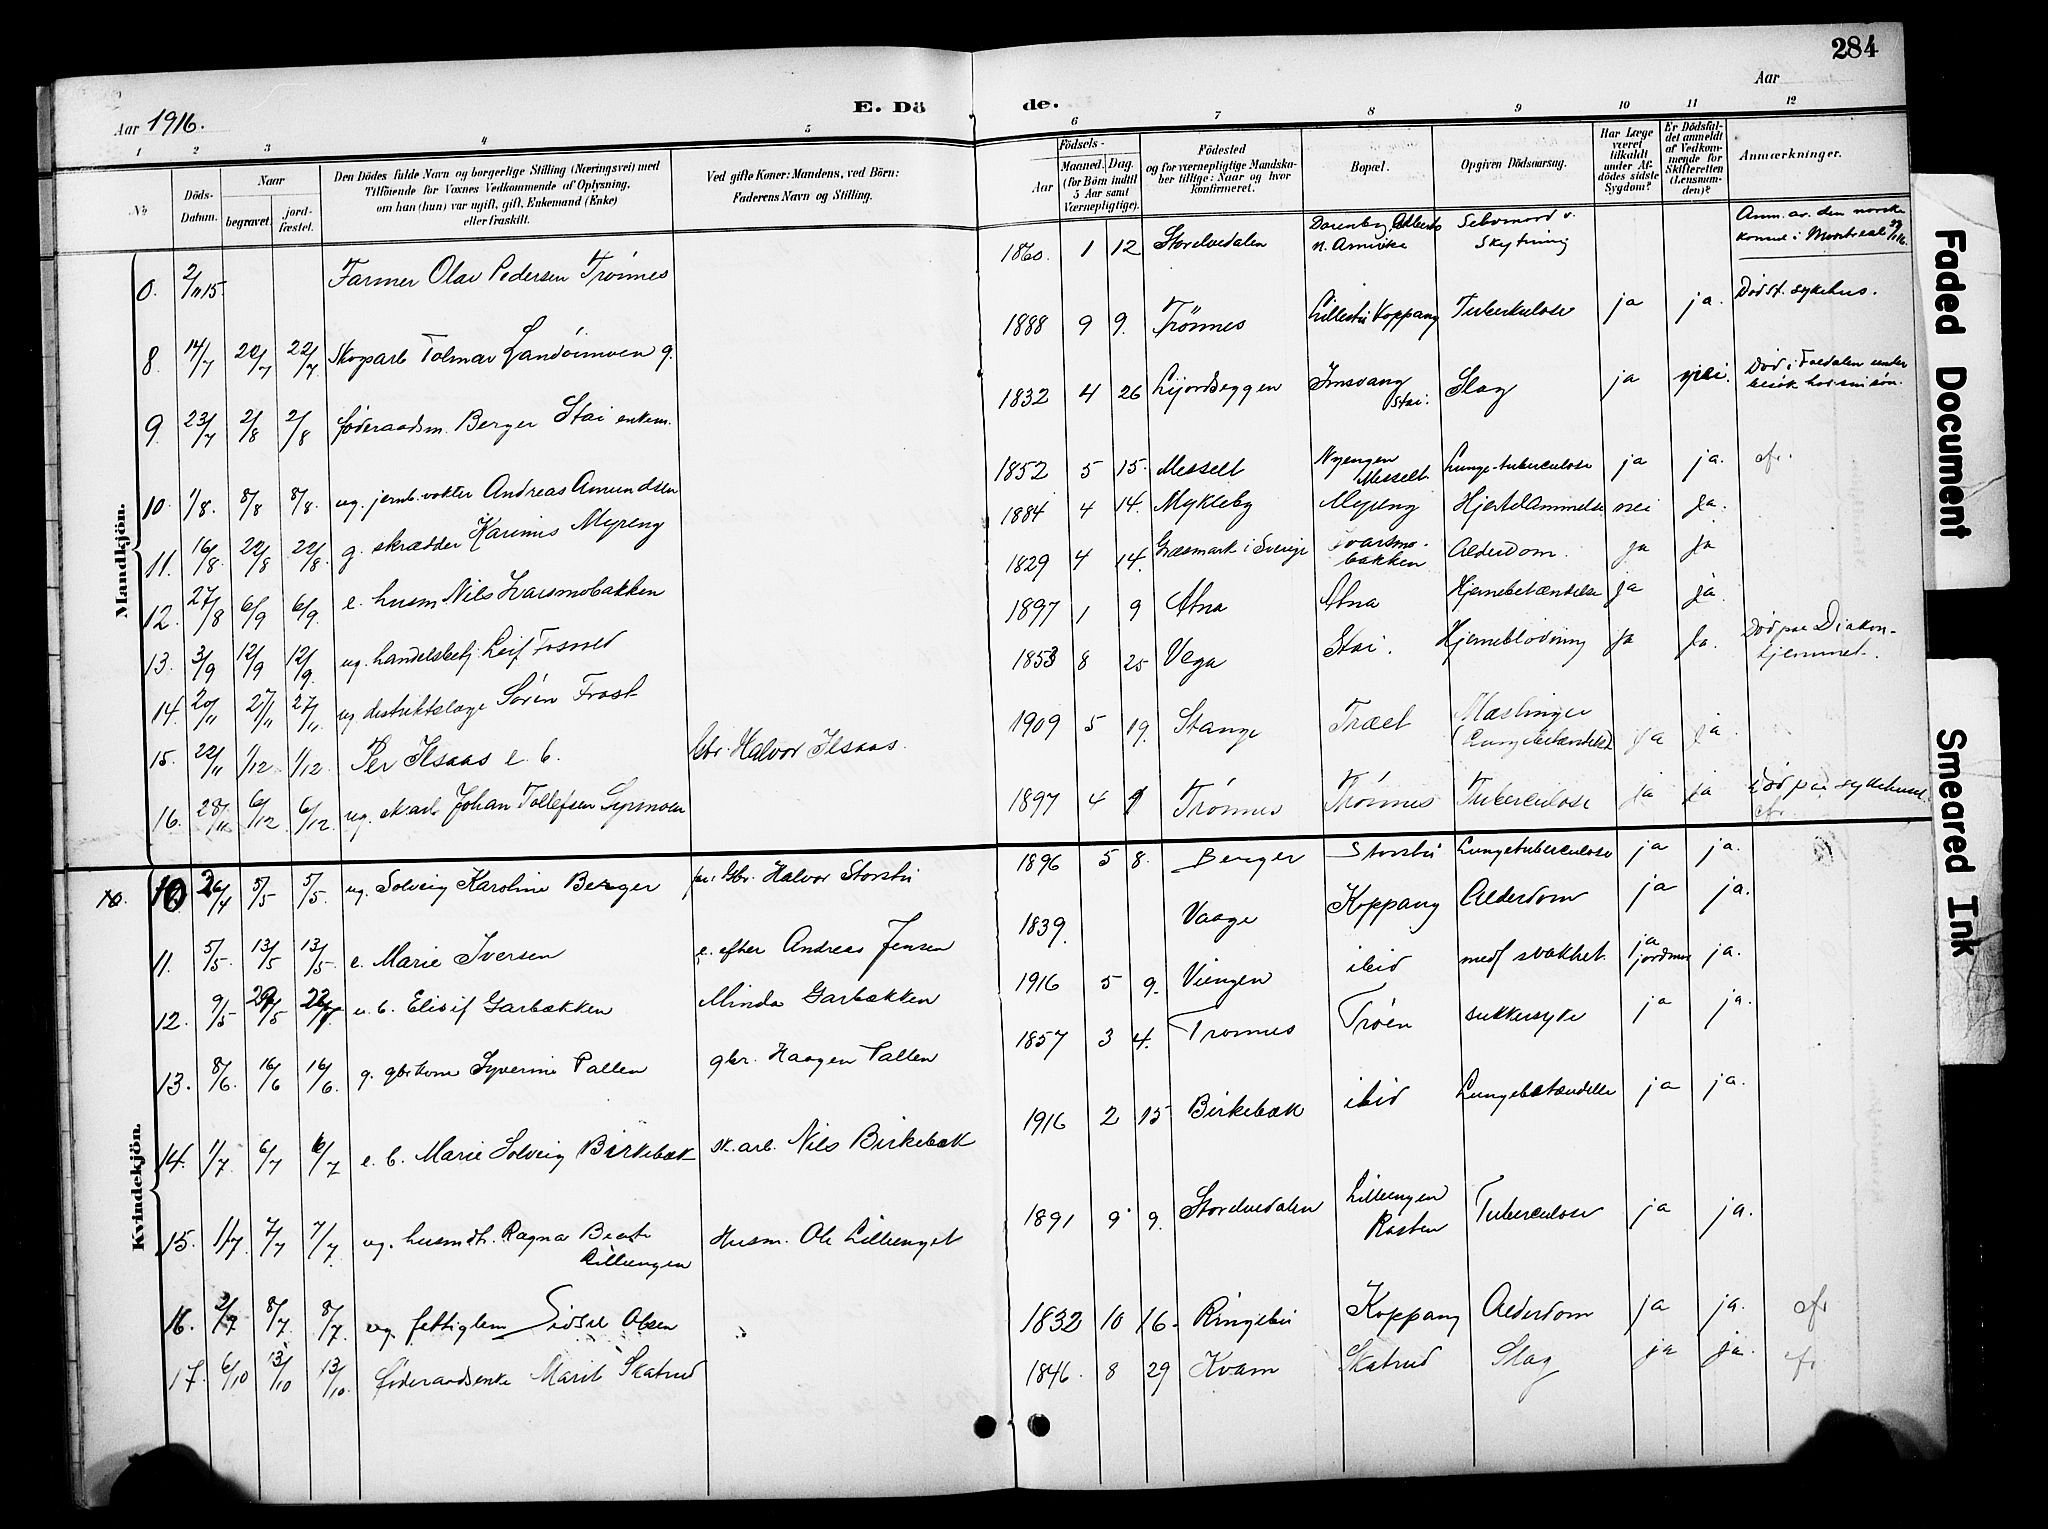 284
Aar 1916.
E. Dö de.
Aar
1 2 3 4 5 6 7 8 9 10 11 12
No.
Döds-Datum.
Naar
begravet.
jord-fæstet.
Den Dödes fulde Navn og borgerlige Stilling (Næringsvei) med
Tilföiende for Voxnes Vedkommende af Oplysning,
om han (hun) var ugift, gift, Enkemand (Enke)
eller fraskilt.
Ved gifte Koner: Mandens, ved Börn:
Faderens Navn og Stilling.
Födsels-
Aar
Maaned. Dag.
(for Börn indtil
5 Aar samt
Værnepligtige).
Födested
og for værnepligtige Mandska-
ber tillige: Naar og hvor
konfirmeret.
Bopæl.
Opgiven Dödsaarsag.
Har Læge
været
tilkaldt
under Af-
dödes sidste
Sygdom?
Er Dödsfal-
det anmeldt
af Vedkom-
mende for
Skifteretten
(Lensman-
den)?
Anmærkninger.
Mandkjön.
0. 2/11 15. Farmer Olav Pedersen Trönnes 1860. 1 12 Storelvedalen n. Amerika Selvmord v. Skytning Anm. av den norske konsul i Montreal
8. 14/7 20/7 22/7 Skogsarb. Tolmar Landöimoen g. 1888 9 9. Trönnes Lillestu Koppang Tuberkulose ja ja. Död st. sykehus.
9. 23/7 2/8 2/8 föderaadsm. Berger Stai enkem. 1832 4 26 Lijordseggen Imsvang Stai. Slag ja nei. Död i Foldalen under besök hos sin sön.
10. 1/8. 8/8 8/8. ug. jernb.vokter Andreas Amundsen 1852 5 15. Messelt Nyengen Messelt Lunge-tuberculose ja ja. efr.
11. 16/8. 22/8 22/8. g. skrædder Karinus Myreng 1884 4 14. Mykleby Myreng Hjertelammelse nei ja.
12. 27/8 6/9 6/9. e. husm Nils Ivarsmobakken 1829 4 14. Græsmark i Sverige Ivarsmo-bakken Alderdom. ja ja
13. 3/9 12/9 12/9. ug. handelsbetj. Leif Fosnes 1897 1 9 Atna Atna Hjernebetændelse ja ja.
14. 20/11 27/11 27/11. ug. distriktslæge Sören Frost 1853 8 25 Vega Stai. Hjerneblödning ja ja. Död paa Diakon-hjemmet.
15. 22/11 1/12 1/12. Per Ilsaas e. b. Gbr. Halvor Ilsaas. 1909 5 19. Stange Træet Mæslinger (Lungebetændelse) ja ja.
16. 28/11 6/12 6/12. ug. sk.arb Johan Tollefsen Syrmoen 1897 4 9 Trönnes Trönnes Tuberculose ja ja Död paa sykehuset. efr.
Kvindekjön.
10. 10 26/4 5/5 5/5. ug. Solveig Karoline Berger Gbr. Halvor Storstu 1896 5 8. Berger Storstu Lungetuberculose ja ja.
11. 5/5. 13/5 13/5. e. Marie Iversen e. efter Andreas Jensen 1839. Vaage Koppang Alderdom ja ja.
12. 9/5 29/5 e. b. Elisif Garbækken Minda Garbækken 1916 5 9. Viengen ibid medf svakhet. ja jordmor ja.
13. 8/6. 16/6 16/6. g. gbrkone Syverine Pallen gbr. Haagen Pallen 1857 3 4. Tronnes Tröen sukkersyke ja ja.
14. 1/7. 6/7 6/7 e. b. Marie Solveig Birkebæk sk.arb. Nils Birkebæk 1916 2 15 Birkebæk ibid Lungebetændelse ja ja.
15. 1/7. 7/7 7/7. ug. husmdt. Ragna Beate Lillengen Husm. Ole Lillienget 1891 9 9. Storelvedalen Lilleengen Rasten Tuberculose ja ja.
16. 8/7 8/7. ug. fattiglem Sidsel Olsen 1832 10 16. Ringebu Koppang Alderdom ja ja. efr
17. 6/10 13/10 13/10. föderaadsenke Marit Skatrud 1846. 8 29 Kvam Skatrud Slag ja ja. efr
Faded Document
Smeared Ink